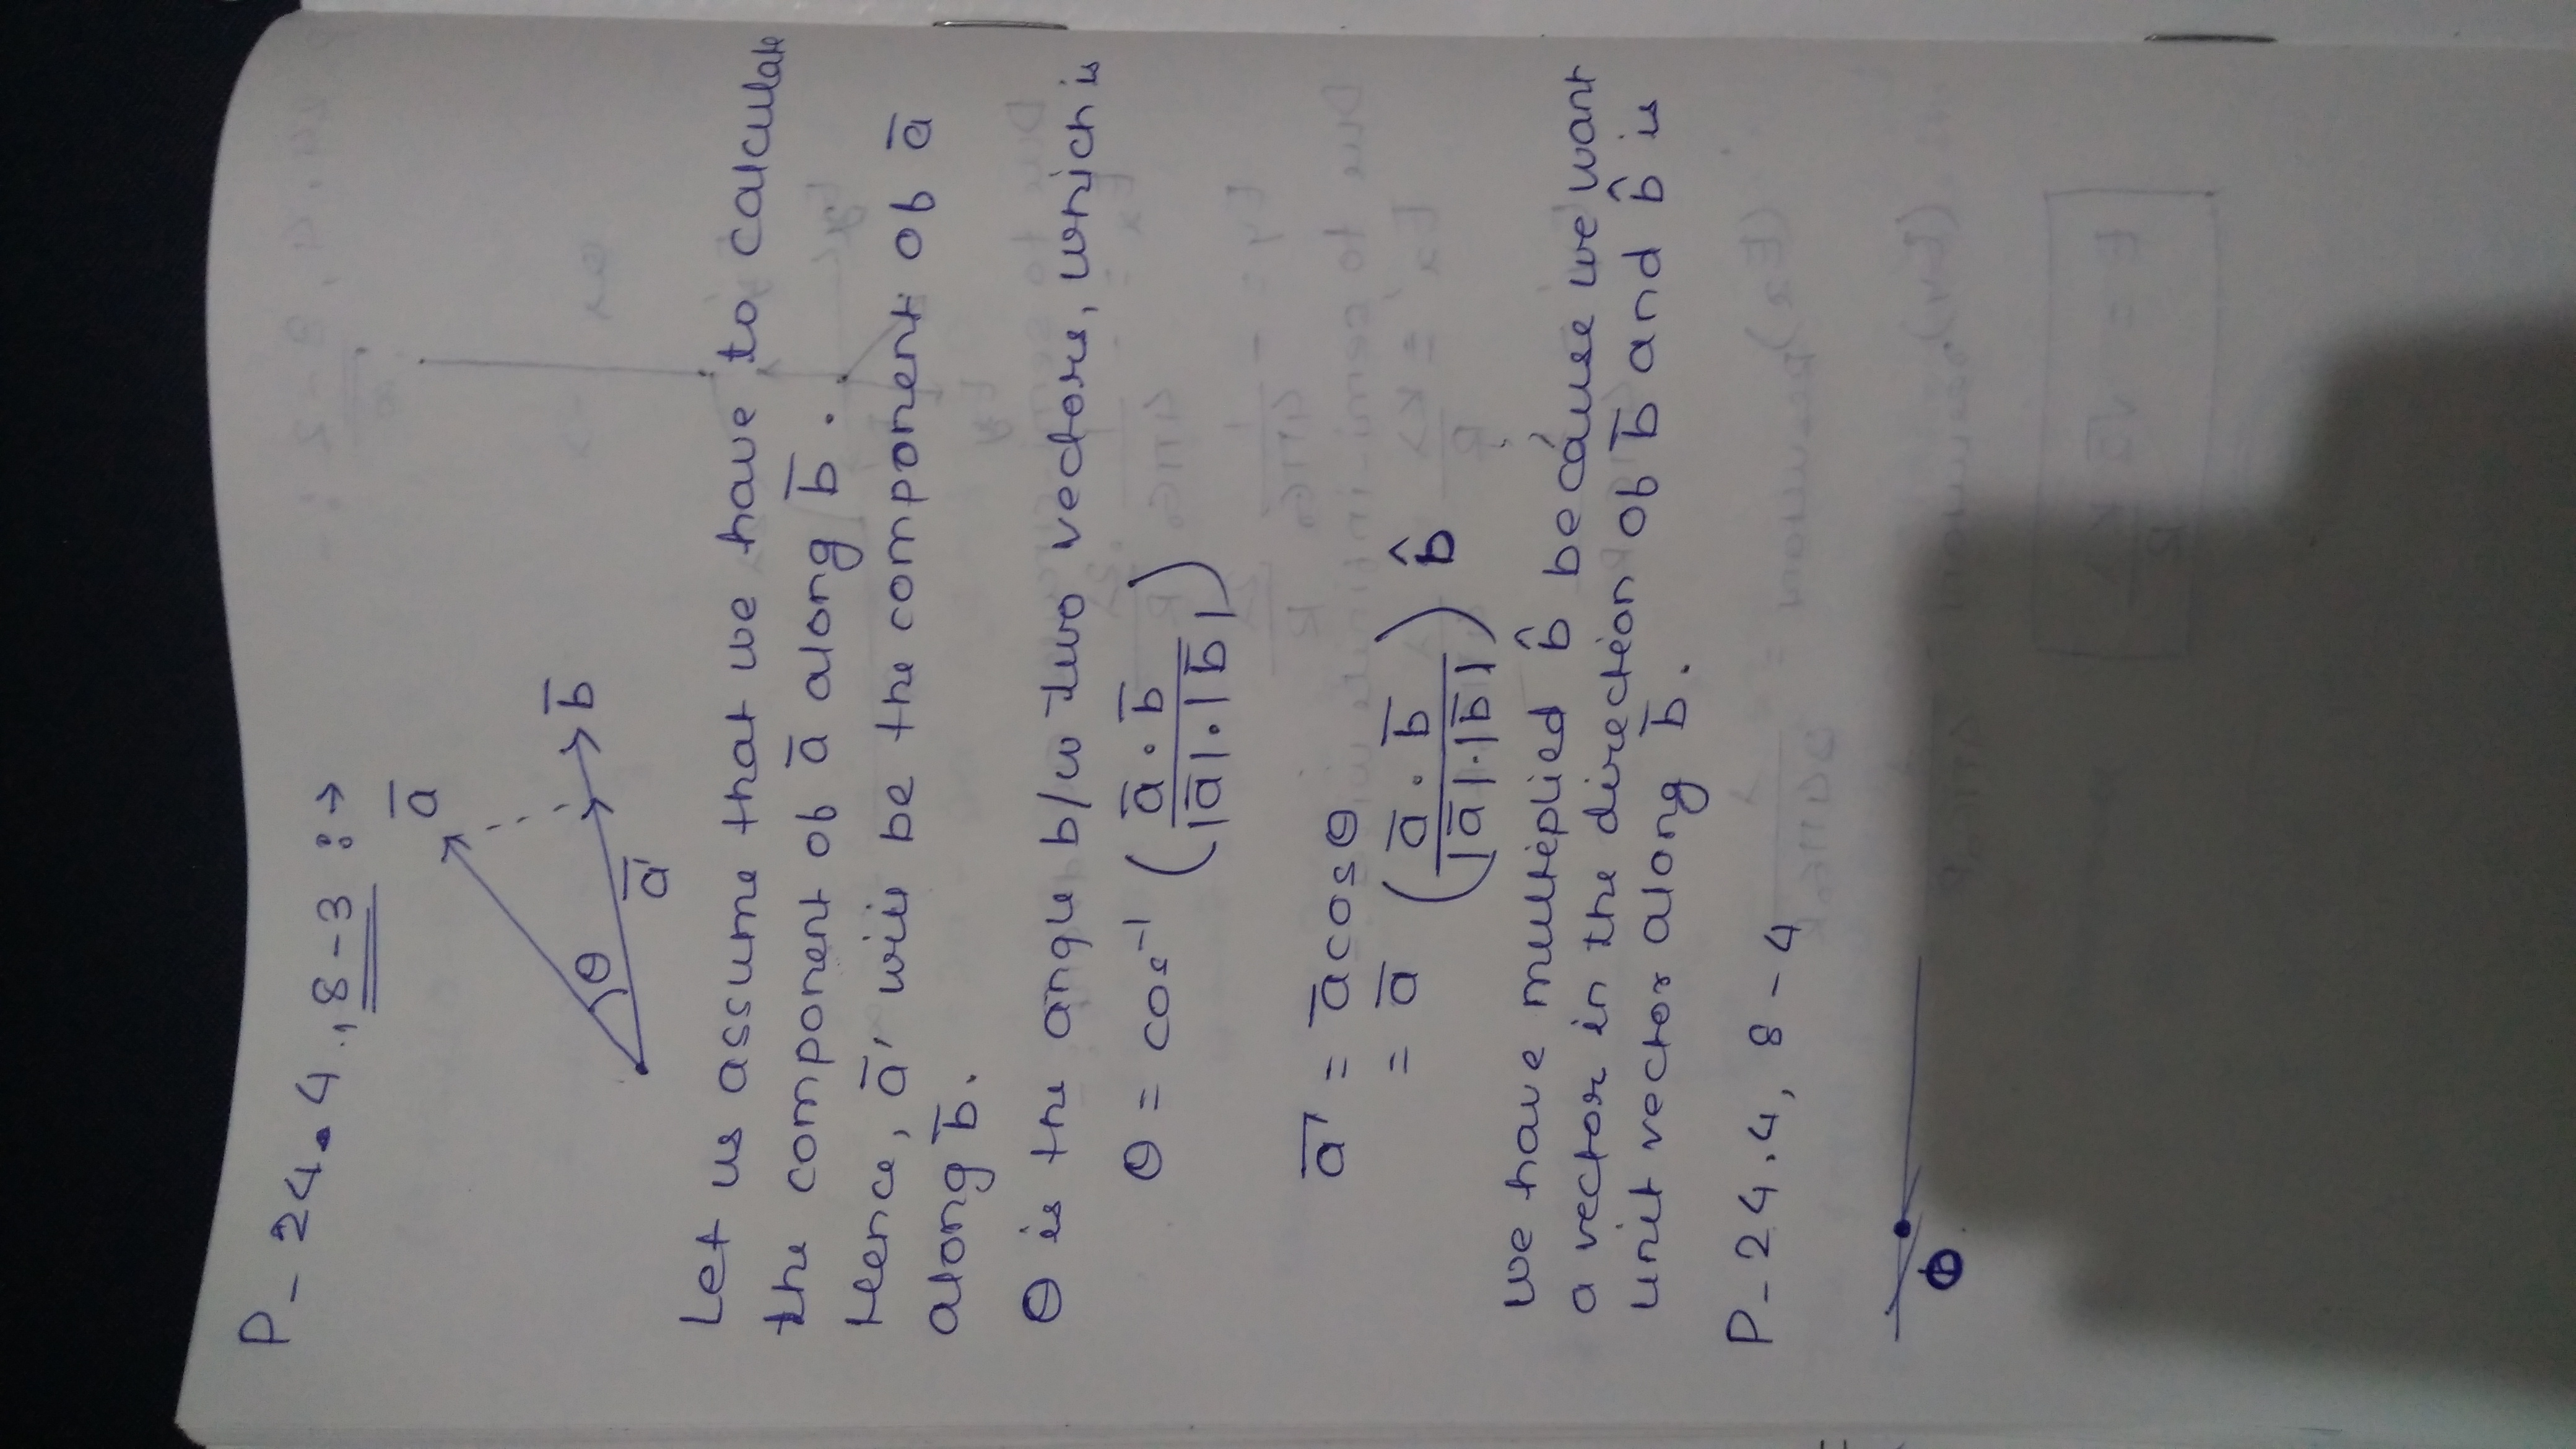 P - 24.4., 8-3 :→
a̅
θ
a̅'
b̅
Let us assume that we have to calculate
the component of a̅ along b̅.
Hence, a̅' will be the component of a̅
along b̅.
θ is the angle b/w two vectors, which is
θ = cos⁻¹ (a̅ . b̅ / |a̅|.|b̅|)
a̅' = a̅ cosθ
= a̅ (a̅ . b̅ / |a̅|.|b̅|) b̂
we have multiplied b̂ because we want
a vector in the direction of b̅ and b̂ is
unit vector along b̅.
P - 24.4, 8-4